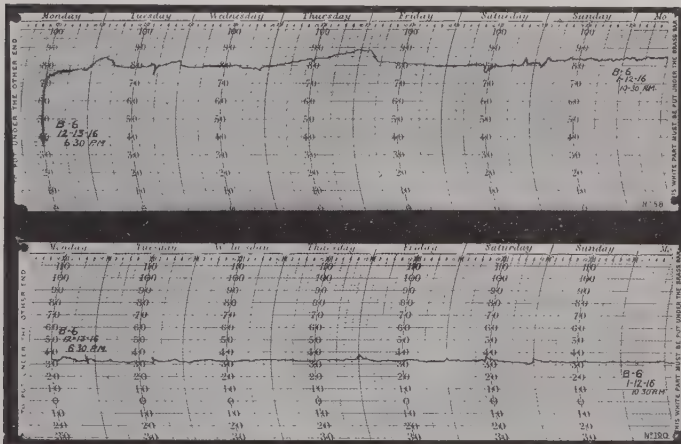 Monday Tuesday Wednesday Thursday Friday Saturday Sunday Mo
100 100 100 100 100 100 100
90 90 90 90 90 90 90
80 80 80 80 80 80 80
70 70 70 70 70 70
60 60 60 60 60 60
50 50 50 50 50 50
40 40 40 40 40 40
30 30 30 30 30 30 30
20 20 20 20 20 20 20
10 10 10 10 10 10 10
0 0 0 0 0 0 0
B-6
12-13-16
6 30 P.M.
B-6
1-12-16
10-30 A.M.
PUT UNDER THE OTHER END
IS WHITE PART MUST BE PUT UNDER THE BRASS BAR
Nº58
Monday Tuesday Wednesday Thursday Friday Saturday Sunday Mo
110 110 110 110 110 110 110
100 100 100 100 100 100 100
90 90 90 90 90 90 90
80 80 80 80 80 80 80
70 70 70 70 70 70 70
60 60 60 60 60 60 60
50 50 50 50 50 50 50
40 40 40 40 40 40 40
30 30 30 30 30 30 30
20 20 20 20 20 20 20
10 10 10 10 10 10 10
0 0 0 0 0 0 0
10 10 10 10 10 10 10
20 20 20 20 20 20 20
30 30 30 30 30 30 30
B-6
12-13-16
6 30 A.M.
B-6
1-12-16
10 30 A.M.
TO PUT UNDER THE OTHER END
THIS WHITE PART MUST BE PUT UNDER THE BRASS BAR
Nº100